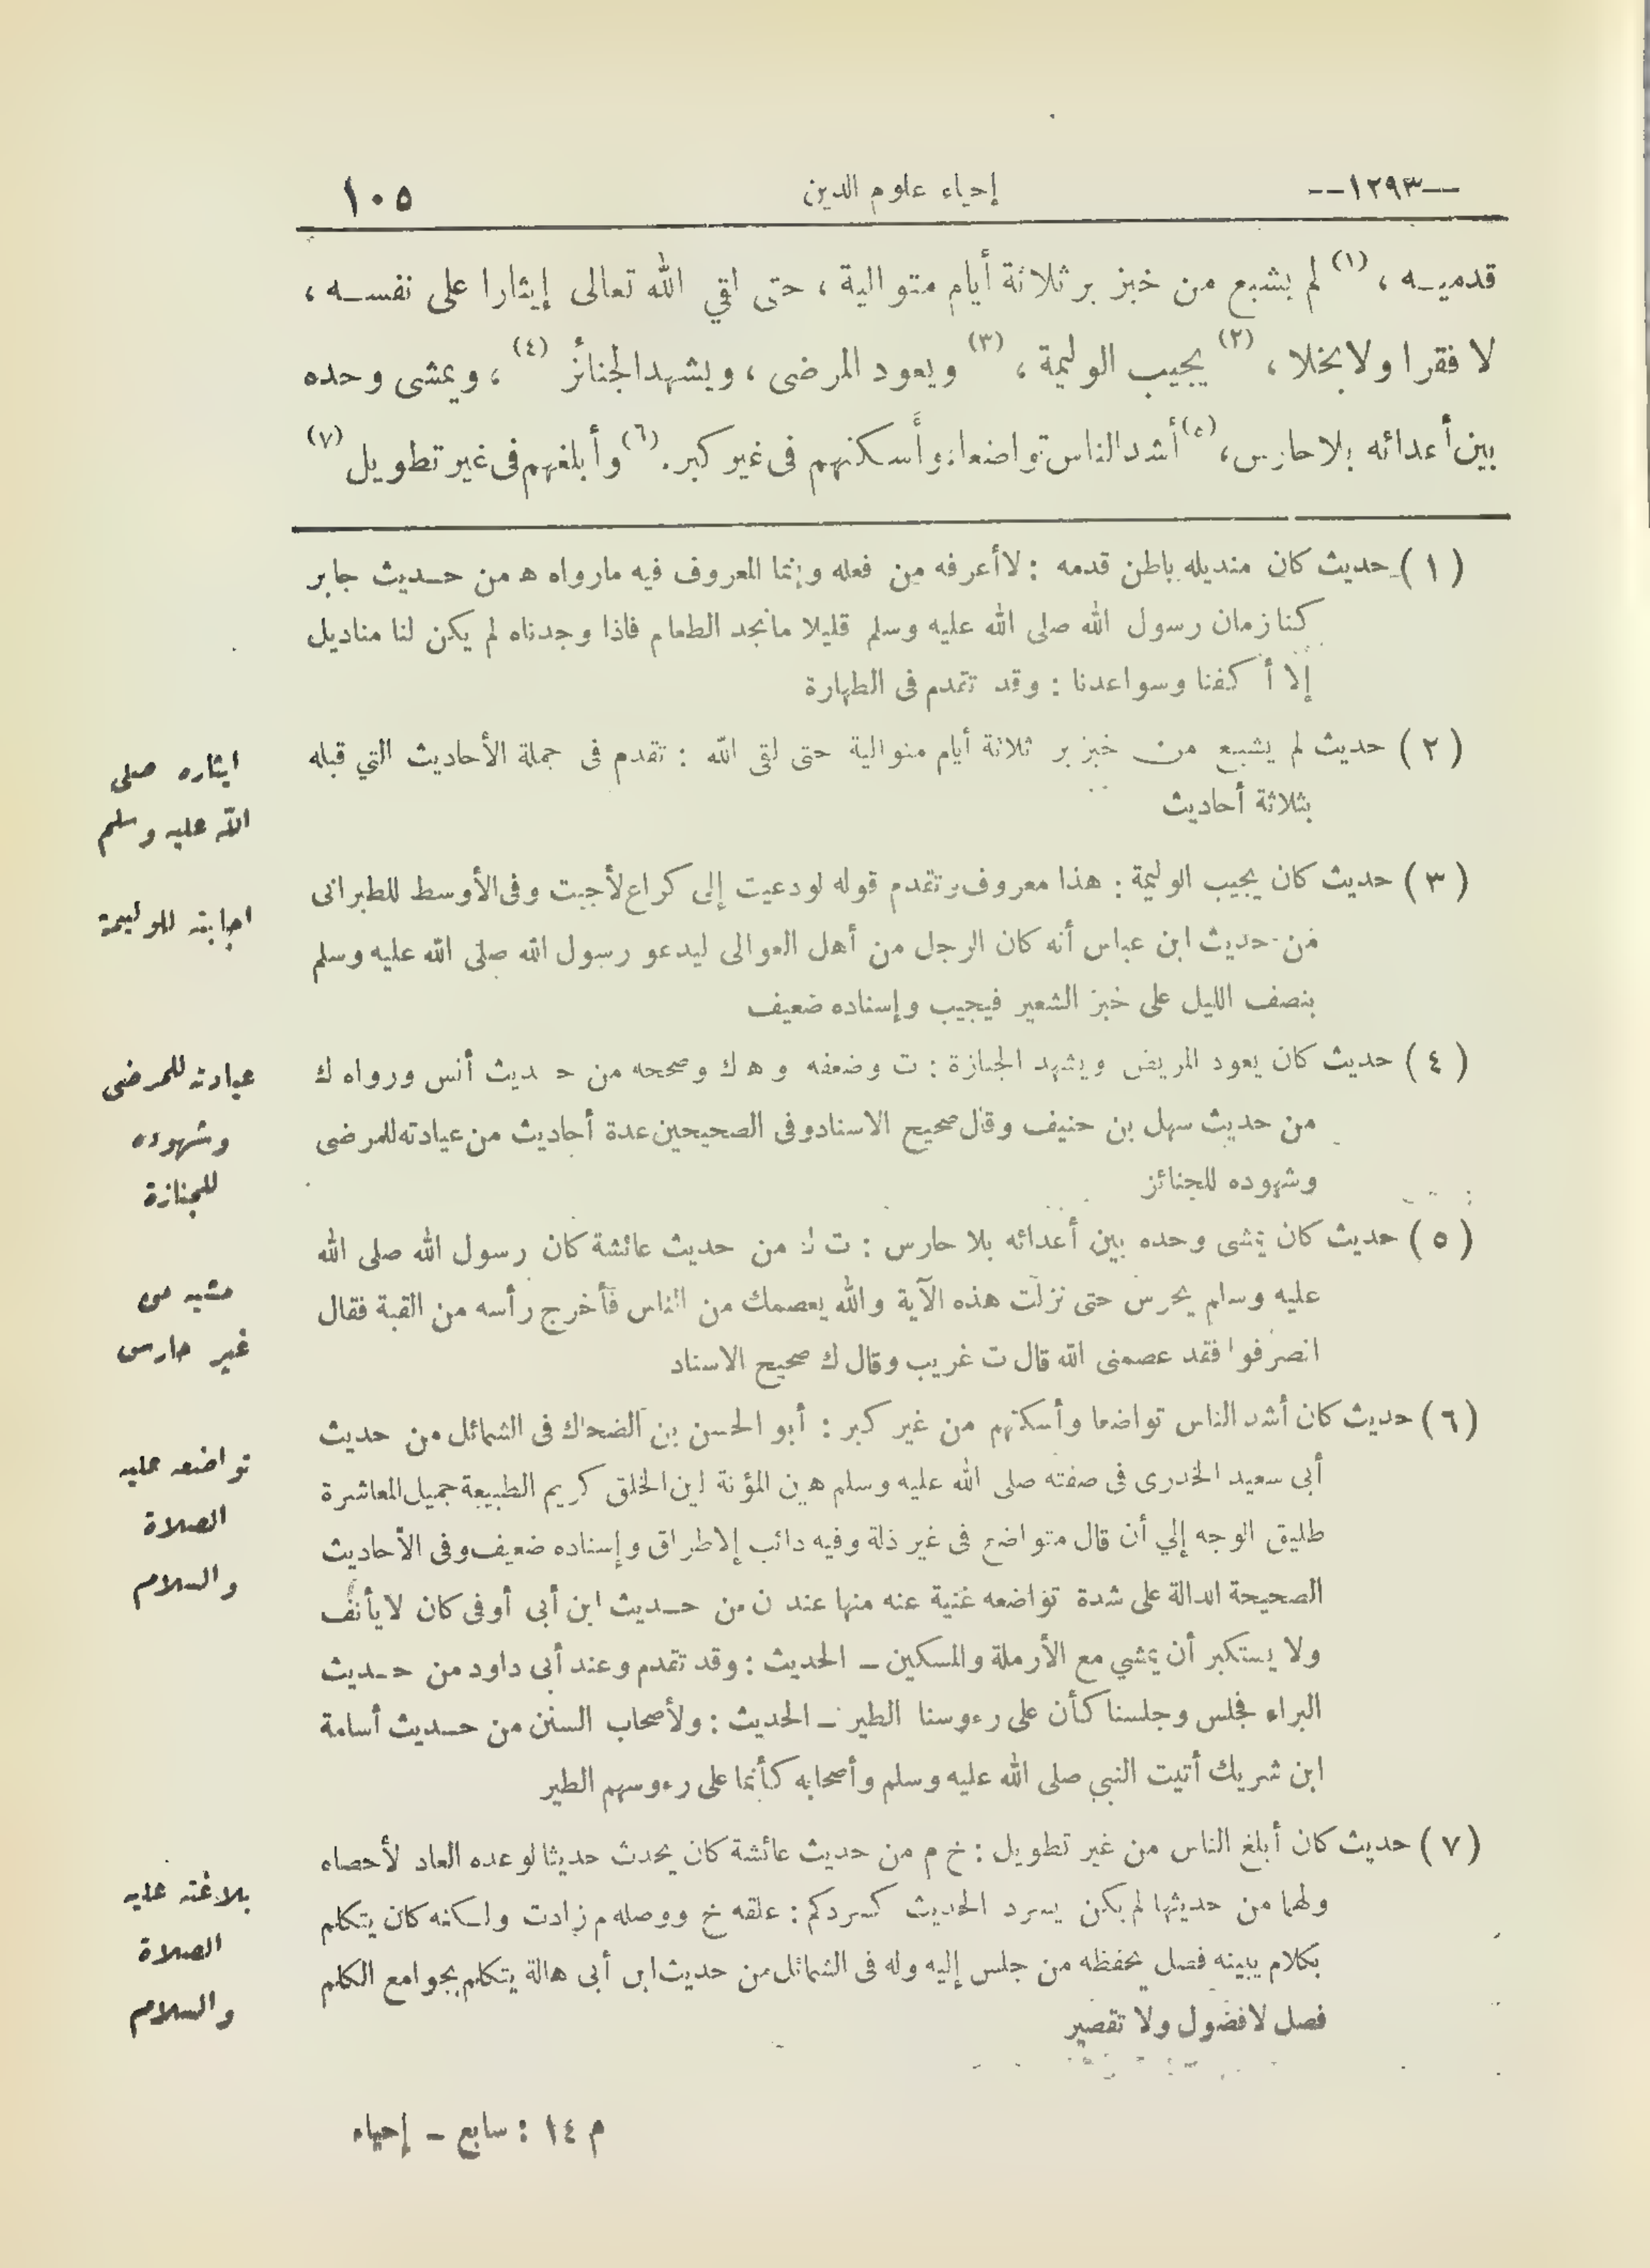 --١٢٩٣-- إحياء علوم الدين ١٠٥
قدميـه ، (١) لم يشبع من خبز بر ثلاثة أيام متوالية ، حتى لقي الله تعالى إيثارا على نفسـه ،
لا فقرا ولا بخلا ، (٢) يجيب الوليمة ، (٣) ويعود المرضى ، ويشهد الجنائز (٤) ، ويمشى وحده
بين أعدائه بلا حارس ، (٥) أشد الناس تواضعا ، وأسكنهم فى غير كبر . (٦) وأبلغهم فى غير تطويل (٧)
(١) حديث كان منديله باطن قدمه : لا أعرفه من فعله وإنما المعروف فيه مارواه ه من حـديث جابر
كنا زمان رسول الله صلى الله عليه وسلم قليلا مانجد الطعام فاذا وجدناه لم يكن لنا مناديل
إلا أكفنا وسواعدنا : وقد تقدم فى الطهارة
(٢) حديث لم يشبع من خبز بر ثلاثة أيام متوالية حتى لقى الله : تقدم فى جملة الأحاديث التي قبله
بثلاثة أحاديث
ايثاره صلى
الله عليه وسلم
(٣) حديث كان يجيب الوليمة : هذا معروف وتقدم قوله لودعيت إلى كراع لأجبت وفى الأوسط للطبرانى
من حديث ابن عباس أنه كان الرجل من أهل العوالى ليدعو رسول الله صلى الله عليه وسلم
بنصف الليل على خبز الشعير فيجيب وإسناده ضعيف
اجابته للوليمة
(٤) حديث كان يعود المريض ويشهد الجنازة : ت وضعفه و ه ك وصححه من حـديث أنس ورواه ك
من حديث سهل بن حنيف وقال صحيح الاسناد وفى الصحيحين عدة أحاديث من عيادته للمرضى
وشهوده للجنائز
عيادته للمرضى
وشهوده
للجنازة
(٥) حديث كان يمشى وحده بين أعدائه بلا حارس : ت ك من حديث عائشة كان رسول الله صلى الله
عليه وسلم يحرس حتى نزلت هذه الآية والله يعصمك من الناس فأخرج رأسه من القبة فقال
انصرفوا فقد عصمنى الله قال ت غريب وقال ك صحيح الاسناد
مشيه من
غير حارس
(٦) حديث كان أشد الناس تواضعا وأسكنهم من غير كبر : أبو الحسن بن الضحاك فى الشمائل من حديث
أبى سعيد الخدرى فى صفته صلى الله عليه وسلم هين المؤنة لين الخلق كريم الطبيعة جميل المعاشرة
طليق الوجه إلي أن قال متواضع فى غير ذلة وفيه دائب إلاطراق وإسناده ضعيف وفى الأحاديث
الصحيحة الدالة على شدة تواضعه غنية عنه منها عند ن من حـديث ابن أبى أوفى كان لا يأنف
ولا يستكبر أن يمشي مع الأرملة والمسكين ــ الحديث : وقد تقدم وعند أبى داود من حـديث
البراء فجلس وجلسنا كأن على رءوسنا الطير ــ الحديث : ولأصحاب السنن من حـديث أسامة
ابن شريك أتيت النبي صلى الله عليه وسلم وأصحابه كأنما على رءوسهم الطير
تواضعه عليه
الصلاة
والسلام
(٧) حديث كان أبلغ الناس من غير تطويل : خ م من حديث عائشة كان يحدث حديثا لو عده العاد لأحصاه
ولهما من حديثها لم يكن يسرد الحديث كسردكم : علقه خ ووصله م زادت ولكنه كان يتكلم
بكلام يبينه فصل يحفظه من جلس إليه وله فى الشمائل من حديث ابن أبى هالة يتكلم بجوامع الكلم
فصل لا فضول ولا تقصير
بلاغته عليه
الصلاة
والسلام
م ١٤ : سابع ــ إحياء